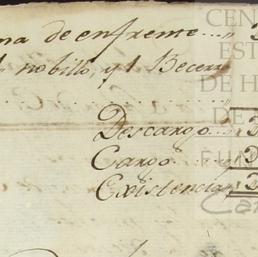 ma de enfrente...
nobillo, y 1 Becerr
Descargo...
Cargo.
Existencia
CEN
EST
DE H
DE
FUN
Car